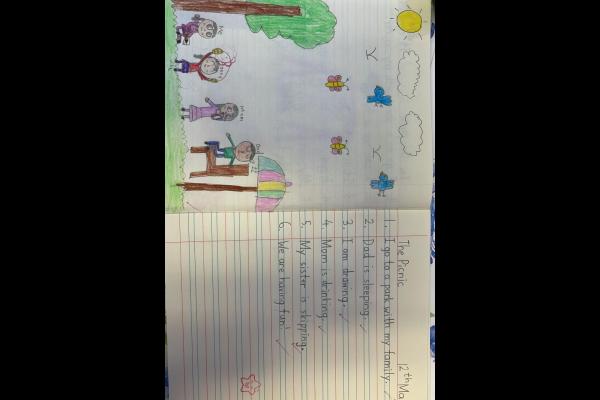 The Picnic
12th Ma
1. I go to a park with my family.
2. Dad is sleeping.
3. I am drawing.
4. Mom is drinking.
5. My sister is skipping.
6. We are having fun!
Me
Mom
Dad